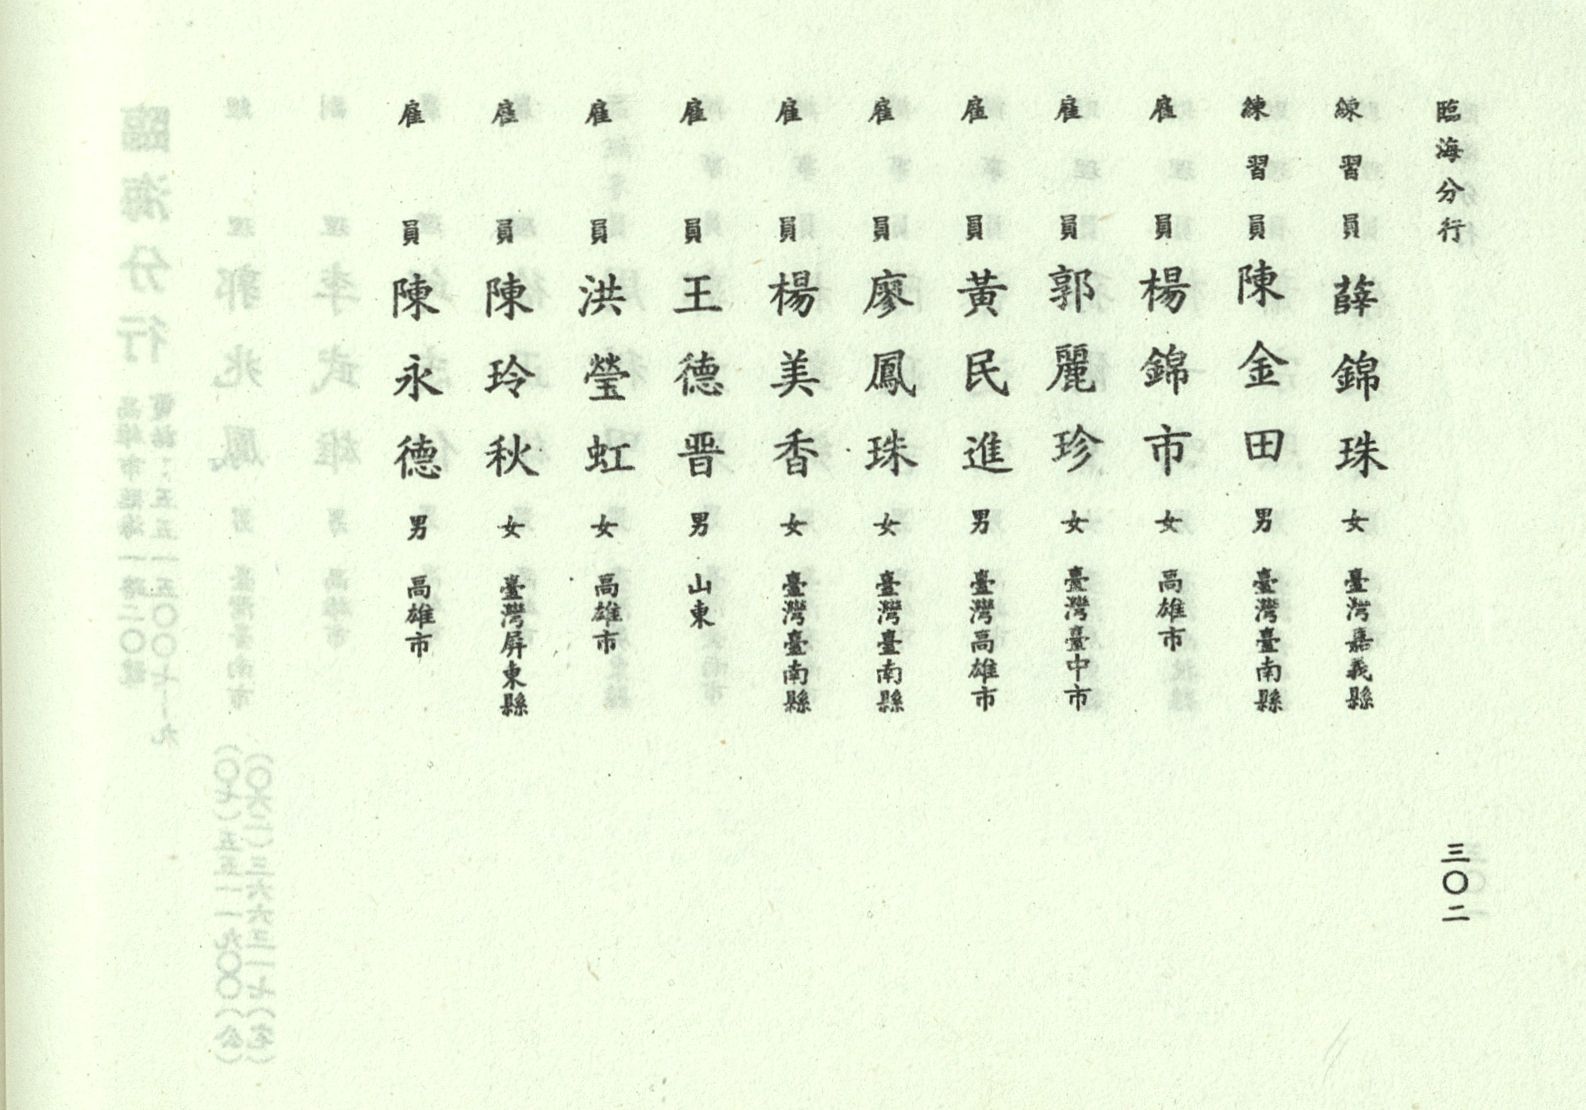 臨海分行
三〇二
練習員 薛錦珠 女 臺灣嘉義縣
練習員 陳金田 男 臺灣臺南縣
雇員 楊錦市 女 高雄市
雇員 郭麗珍 女 臺灣臺中市
雇員 黃民進 男 臺灣高雄市
雇員 廖鳳珠 女 臺灣臺南縣
雇員 楊美香 女 臺灣臺南縣
雇員 王德晋 男 山東
雇員 洪瑩虹 女 高雄市
雇員 陳玲秋 女 臺灣屏東縣
雇員 陳永德 男 高雄市